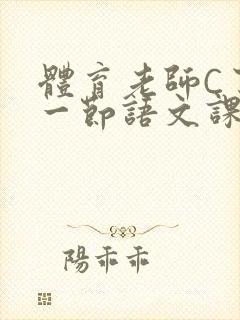 體育老師C了
一節語文課
陽乖乖